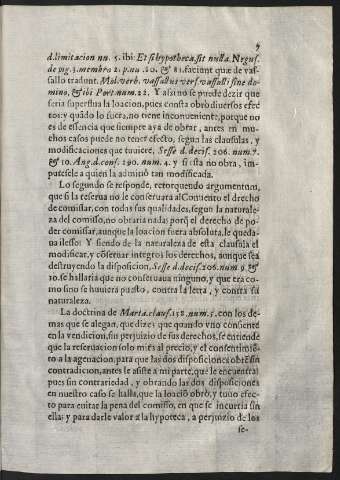 7
d.limitacion nu. 5. ibi: Et si hypotheca sit nulla. Negus.
de pig. 3. membro 2. p. nu. 80. & 81. faciunt quæ de vas-
sallo tradunt. Mol. verb. vassallus vers. vassalli sine do-
mino, & ibi Port. num. 22. Y assi no se puede dezir que
seria superflua la loacion, pues consta obrò diuersos efec
tos: y quãdo lo fuera, no tiene inconueniente, porque no
es de essencia que siempre aya de obrar, antes en muchos
casos puede no tener efecto, segun las clausulas, y
modificaciones que tuuiere, Sesse d. decis. 206. num. 7.
& 10. Ang. d. conf. 290. num. 4. y si esta no obra, im-
putesele a quien la admitiò tan modificada.
Lo segundo se responde, retorquendo argumentum,
que si la reserua no le conseruara al Conuento el drecho
de comissar, con todas sus qualidades, segun la naturale-
za del comisso, no obraria nada; porq̃ el derecho de po-
der comissar, aunque la loacion fuera absoluta, le queda-
ua ilesso: Y siendo de la naturaleza de esta clausula el
modificar, y cõseruar integros los derechos, aunque sea
destruyendo la disposicion, Sesse d. decis. 206. num 9. &
10. se hallaria que no conseruaua ninguno, y que era co-
mo sino se huuiera puesto, contra la letra, y contra su
naturaleza.
La doctrina de Marta clauf. 158. num. 5. con los de-
mas que se alegan, que dize: que quando vno consiente
en la vendicion, sin perjuizio de sus derechos, se entiende
que la reseruacion solo mira al precio, y el consentimiẽ-
to a la agenacion, para que las dos disposiciones obrẽ sin
contradicion, antes le assiste a mi parte, que le encuentra;
pues sin contrariedad, y obrando las dos disposiciones
en nuestro caso se halla, que la loaciõ obrò, y tuuo efec-
to para euitar la pena del comisso, en que se incurria sin
ella; y para darle valor a la hypoteca, a perjuizio de los
se-